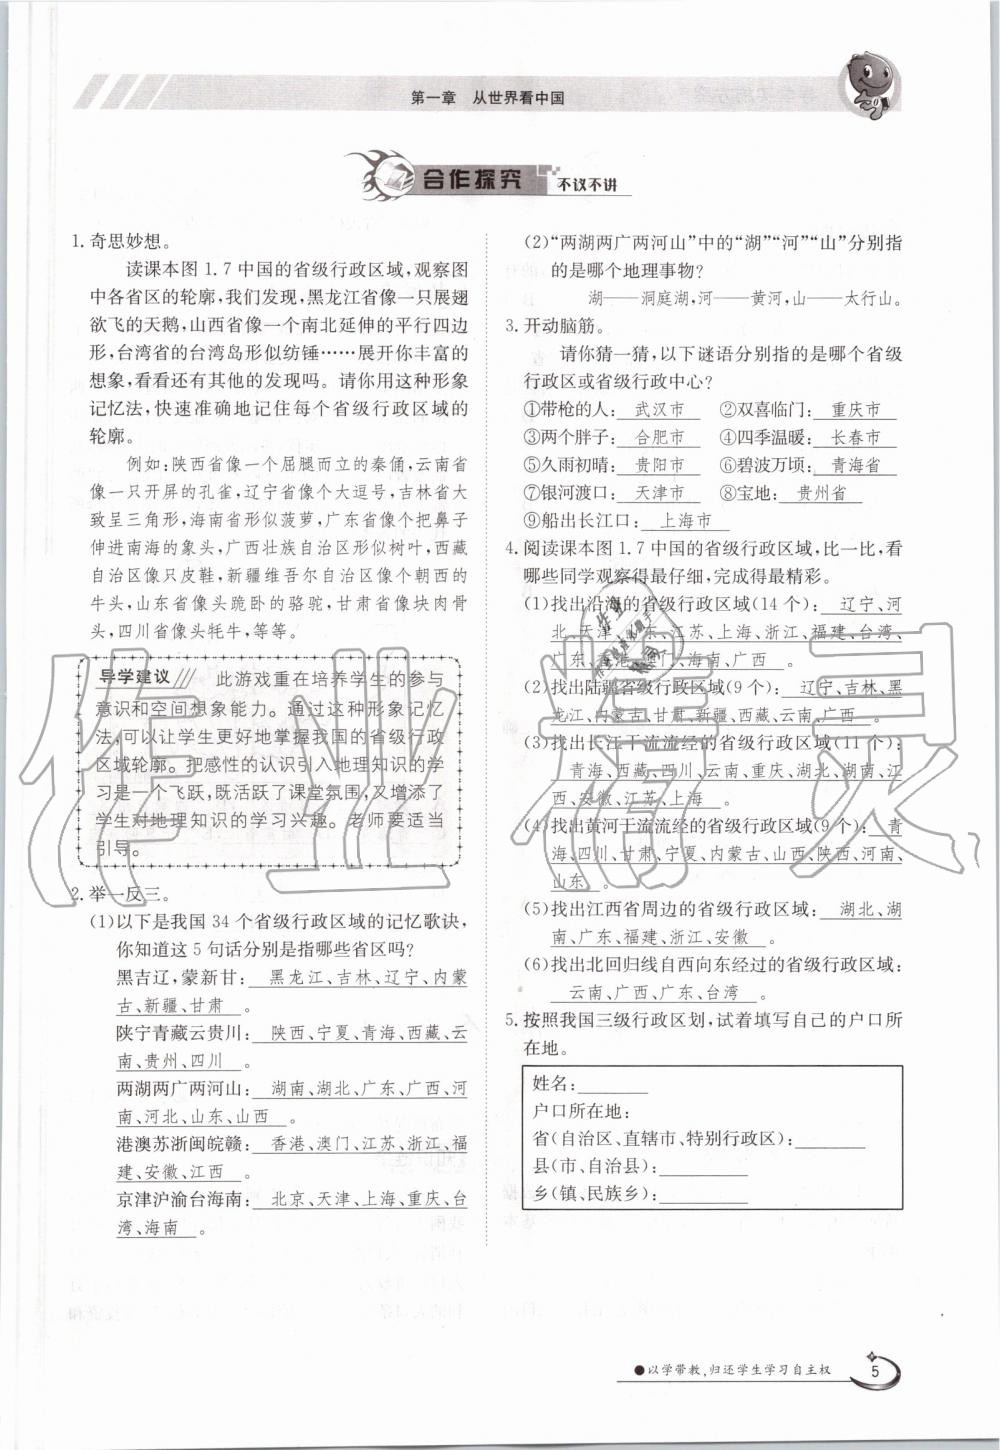 第一章 从世界看中国
合作探究 不议不讲
1. 奇思妙想。
读课本图 1.7 中国的省级行政区域,观察图
中各省区的轮廓,我们发现,黑龙江省像一只展翅
欲飞的天鹅,山西省像一个南北延伸的平行四边
形,台湾省的台湾岛形似纺锤……展开你丰富的
想象,看看还有其他的发现吗。请你用这种形象
记忆法,快速准确地记住每个省级行政区域的
轮廓。
例如:陕西省像一个屈腿而立的秦俑,云南省
像一只开屏的孔雀,辽宁省像个大逗号,吉林省大
致呈三角形,海南省形似菠萝,广东省像个把鼻子
伸进南海的象头,广西壮族自治区形似树叶,西藏
自治区像只皮鞋,新疆维吾尔自治区像个朝西的
牛头,山东省像头跪卧的骆驼,甘肃省像块肉骨
头,四川省像头牦牛,等等。
导学建议 此游戏重在培养学生的参与
意识和空间想象能力。通过这种形象记忆
法,可以让学生更好地掌握我国的省级行政
区域轮廓。把感性的认识引入地理知识的学
习是一个飞跃,既活跃了课堂氛围,又增添了
学生对地理知识的学习兴趣。老师要适当
引导。
2. 举一反三。
(1)以下是我国 34 个省级行政区域的记忆歌诀,
你知道这 5 句话分别是指哪些省区吗?
黑吉辽,蒙新甘: 黑龙江、吉林、辽宁、内蒙
古、新疆、甘肃 。
陕宁青藏云贵川: 陕西、宁夏、青海、西藏、云
南、贵州、四川 。
两湖两广两河山: 湖南、湖北、广东、广西、河
南、河北、山东、山西 。
港澳苏浙闽皖赣: 香港、澳门、江苏、浙江、福
建、安徽、江西 。
京津沪渝台海南: 北京、天津、上海、重庆、台
湾、海南 。
(2)“两湖两广两河山”中的“湖”“河”“山”分别指
的是哪个地理事物?
湖——洞庭湖,河——黄河,山——太行山。
3. 开动脑筋。
请你猜一猜,以下谜语分别指的是哪个省级
行政区或省级行政中心?
①带枪的人: 武汉市 ②双喜临门: 重庆市
③两个胖子: 合肥市 ④四季温暖: 长春市
⑤久雨初晴: 贵阳市 ⑥碧波万顷: 青海省
⑦银河渡口: 天津市 ⑧宝地: 贵州省
⑨船出长江口: 上海市
4. 阅读课本图 1.7 中国的省级行政区域,比一比,看
哪些同学观察得最仔细,完成得最精彩。
(1)找出沿海的省级行政区域(14 个): 辽宁、河
北、天津、山东、江苏、上海、浙江、福建、台湾、
广东、香港、澳门、海南、广西 。
(2)找出陆疆省级行政区域(9 个): 辽宁、吉林、黑
龙江、内蒙古、甘肃、新疆、西藏、云南、广西 。
(3)找出长江干流流经的省级行政区域(11 个):
青海、西藏、四川、云南、重庆、湖北、湖南、江
西、安徽、江苏、上海 。
(4)找出黄河干流流经的省级行政区域(9 个): 青
海、四川、甘肃、宁夏、内蒙古、山西、陕西、河南、
山东 。
(5)找出江西省周边的省级行政区域: 湖北、湖
南、广东、福建、浙江、安徽 。
(6)找出北回归线自西向东经过的省级行政区域:
云南、广西、广东、台湾 。
5. 按照我国三级行政区划,试着填写自己的户口所
在地。
姓名:
户口所在地:
省(自治区、直辖市、特别行政区):
县(市、自治县):
乡(镇、民族乡):
作业精灵
●以学带教,归还学生学习自主权
5